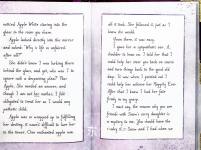 noticed Apple White staring into the
glass in the room you share.
Apple looked directly into the mirror
and asked, "Why is life so unfair
after all?"
She didn't know I was lurking there
behind the glass, and yet, who was I to
ignore such a despairing plea? Poor
Apple. She needed an answer, and
though I am not her mother, I felt
obligated to treat her as I would any
pathetic child.
Apple was so wrapped up in fulfilling
her destiny, it wasn't difficult to lure her
to the tower. One enchanted apple was
all it took. She followed it just as I
knew she would.
From there, it was easy.
I gave her a sympathetic ear. A
shoulder to lean on. I told her that I
could help her clear you back on course
and turn things back to the good old
day. It was when I pointed out I
could help her achieve her Happily Ever
After that I knew I had her fair
firmly in my grasp.
I must say, the reason why you are
friends with Snow's sorry daughter is
a mystery to me. You should have the
rivalry of Snow and I had when we